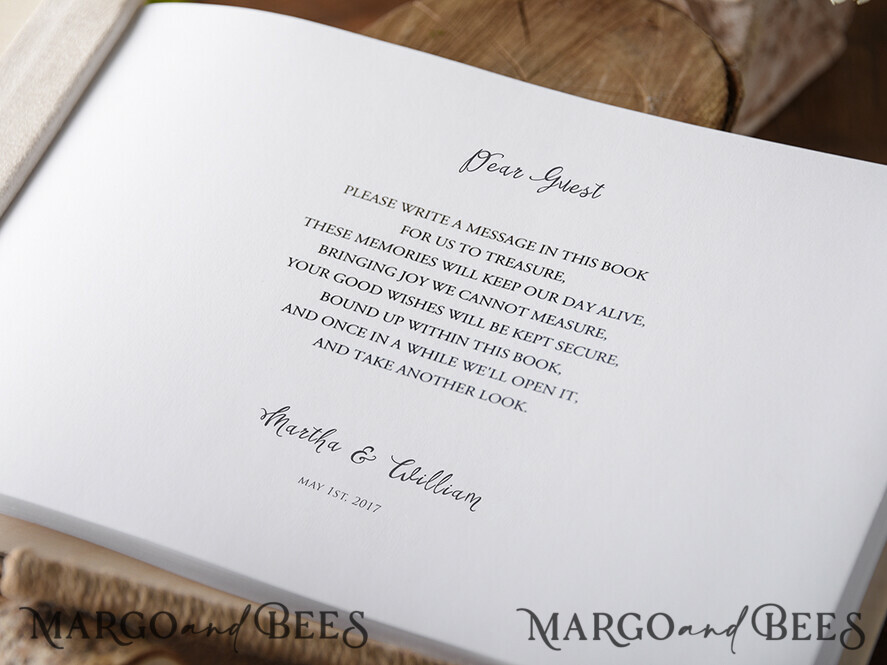 Dear Guest
PLEASE WRITE A MESSAGE IN THIS BOOK
FOR US TO TREASURE,
THESE MEMORIES WILL KEEP OUR DAY ALIVE,
BRINGING JOY WE CANNOT MEASURE,
YOUR GOOD WISHES WILL BE KEPT SECURE,
BOUND UP WITHIN THIS BOOK,
AND ONCE IN A WHILE WE'LL OPEN IT,
AND TAKE ANOTHER LOOK.
Martha & William
MAY 1ST, 2017
MARGO and BEES
MARGO and BEES